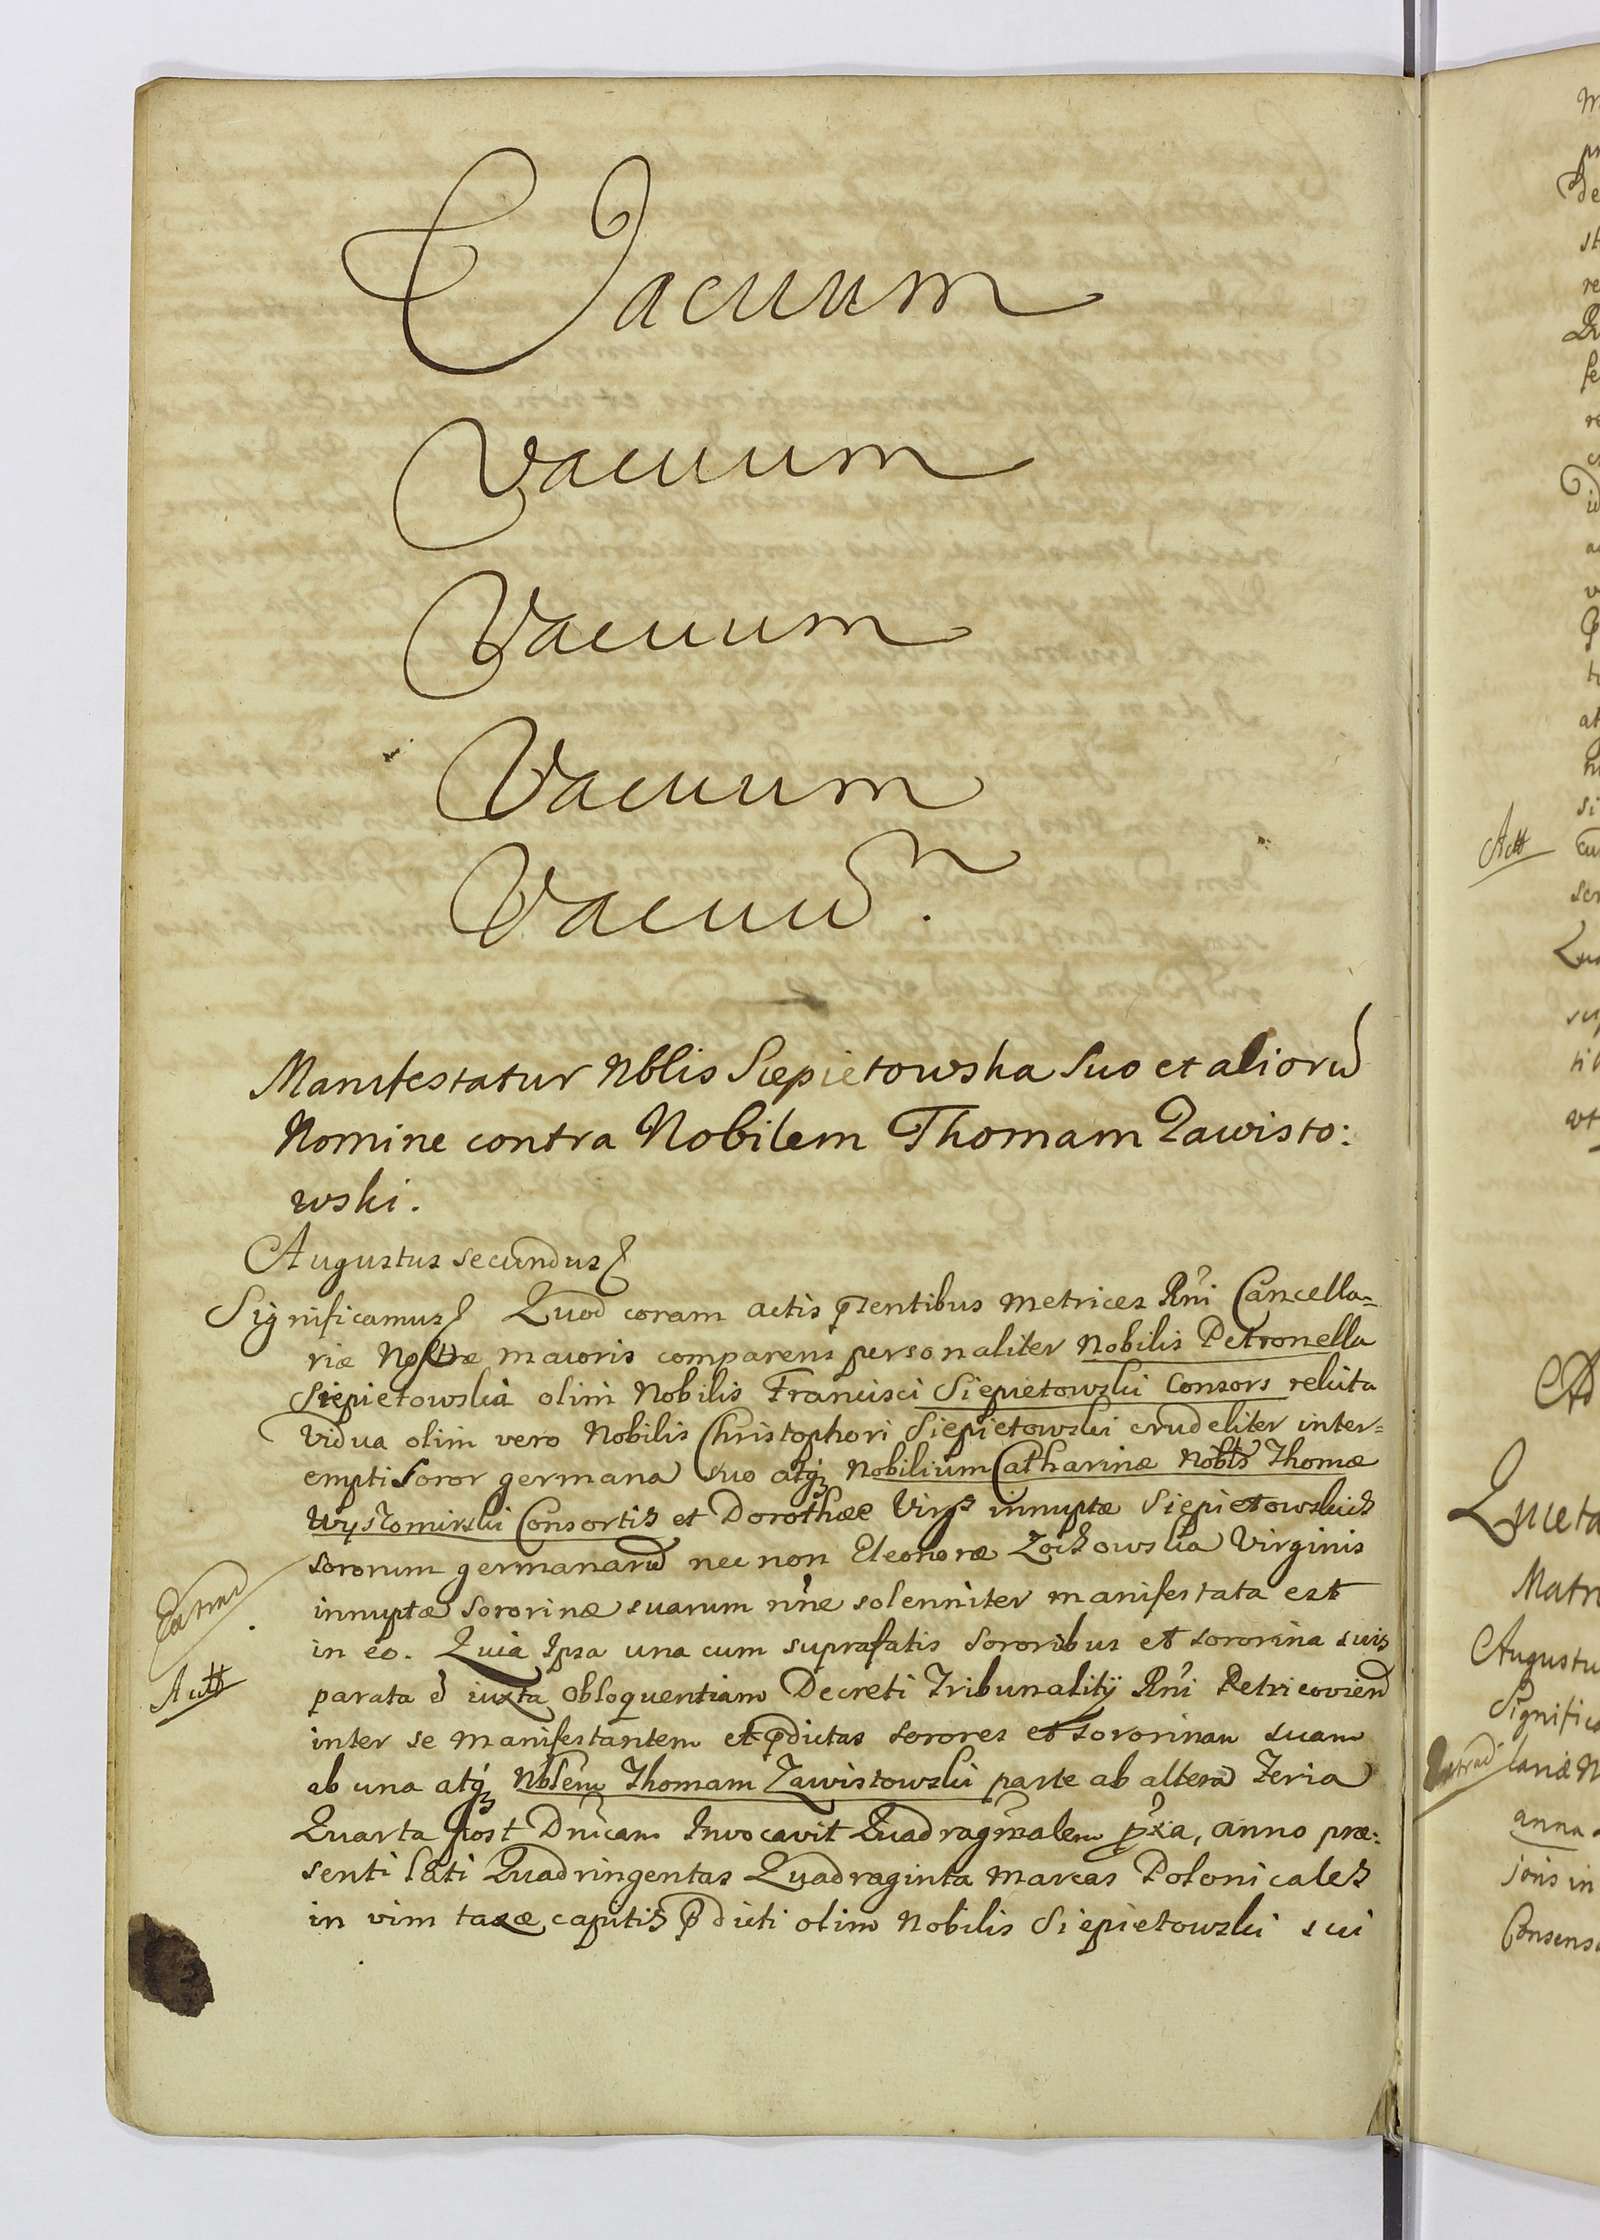 Vacuum
Vacuum
Vacuum
Vacuum
Vacuũ.
Manifestatur Nblis Siepietowska Suo et aliorũ
Nomine contra Nobilem Thomam Zawisto:
wski.
Augustus secundus
Significamus Quod coram actis pñtentibus metrices Rñi Cancella=
riæ Nostræ maioris comparens personaliter Nobilis Petronella
Siepietowska olim Nobilis Francisci Siepietowski Consors relicta
Vidua olim vero Nobilis Christophori Siepietowski crudeliter inter=
empti Soror germana suo atq₃ Nobilium Catharinæ Nobls Thomæ
Wystomirski Consortis et Dorothææ Virgs innuptæ Siepietowskich
sororum germanarũ nec non Eleonoræ Virginis
innuptæ sororinæ suarum nñe solenniter manifestata est
in eo. Quia Ipsa una cum suprafatis Sororibus et sororina suis
parata ẽ iuxta obloquentiam Decreti Tribunalitij Rñi Petricovien
inter se manifestantem et pdictas sorores et sororinam suam
ab una atq₃ Nblem Thomam Zawistowski parte ab altera Feria
Quarta post Dnicam Invocavit Quadragmalem pxa, anno præ:
senti lati Quadringentas Quadraginta marcas Polonicales
in vim taxæ capitis pdicti olim Nobilis Siepietowski sui
Extrad
Actt
Actt
Quieta
Matri
Augustu
Significa
lariæ N
anna
Consensu